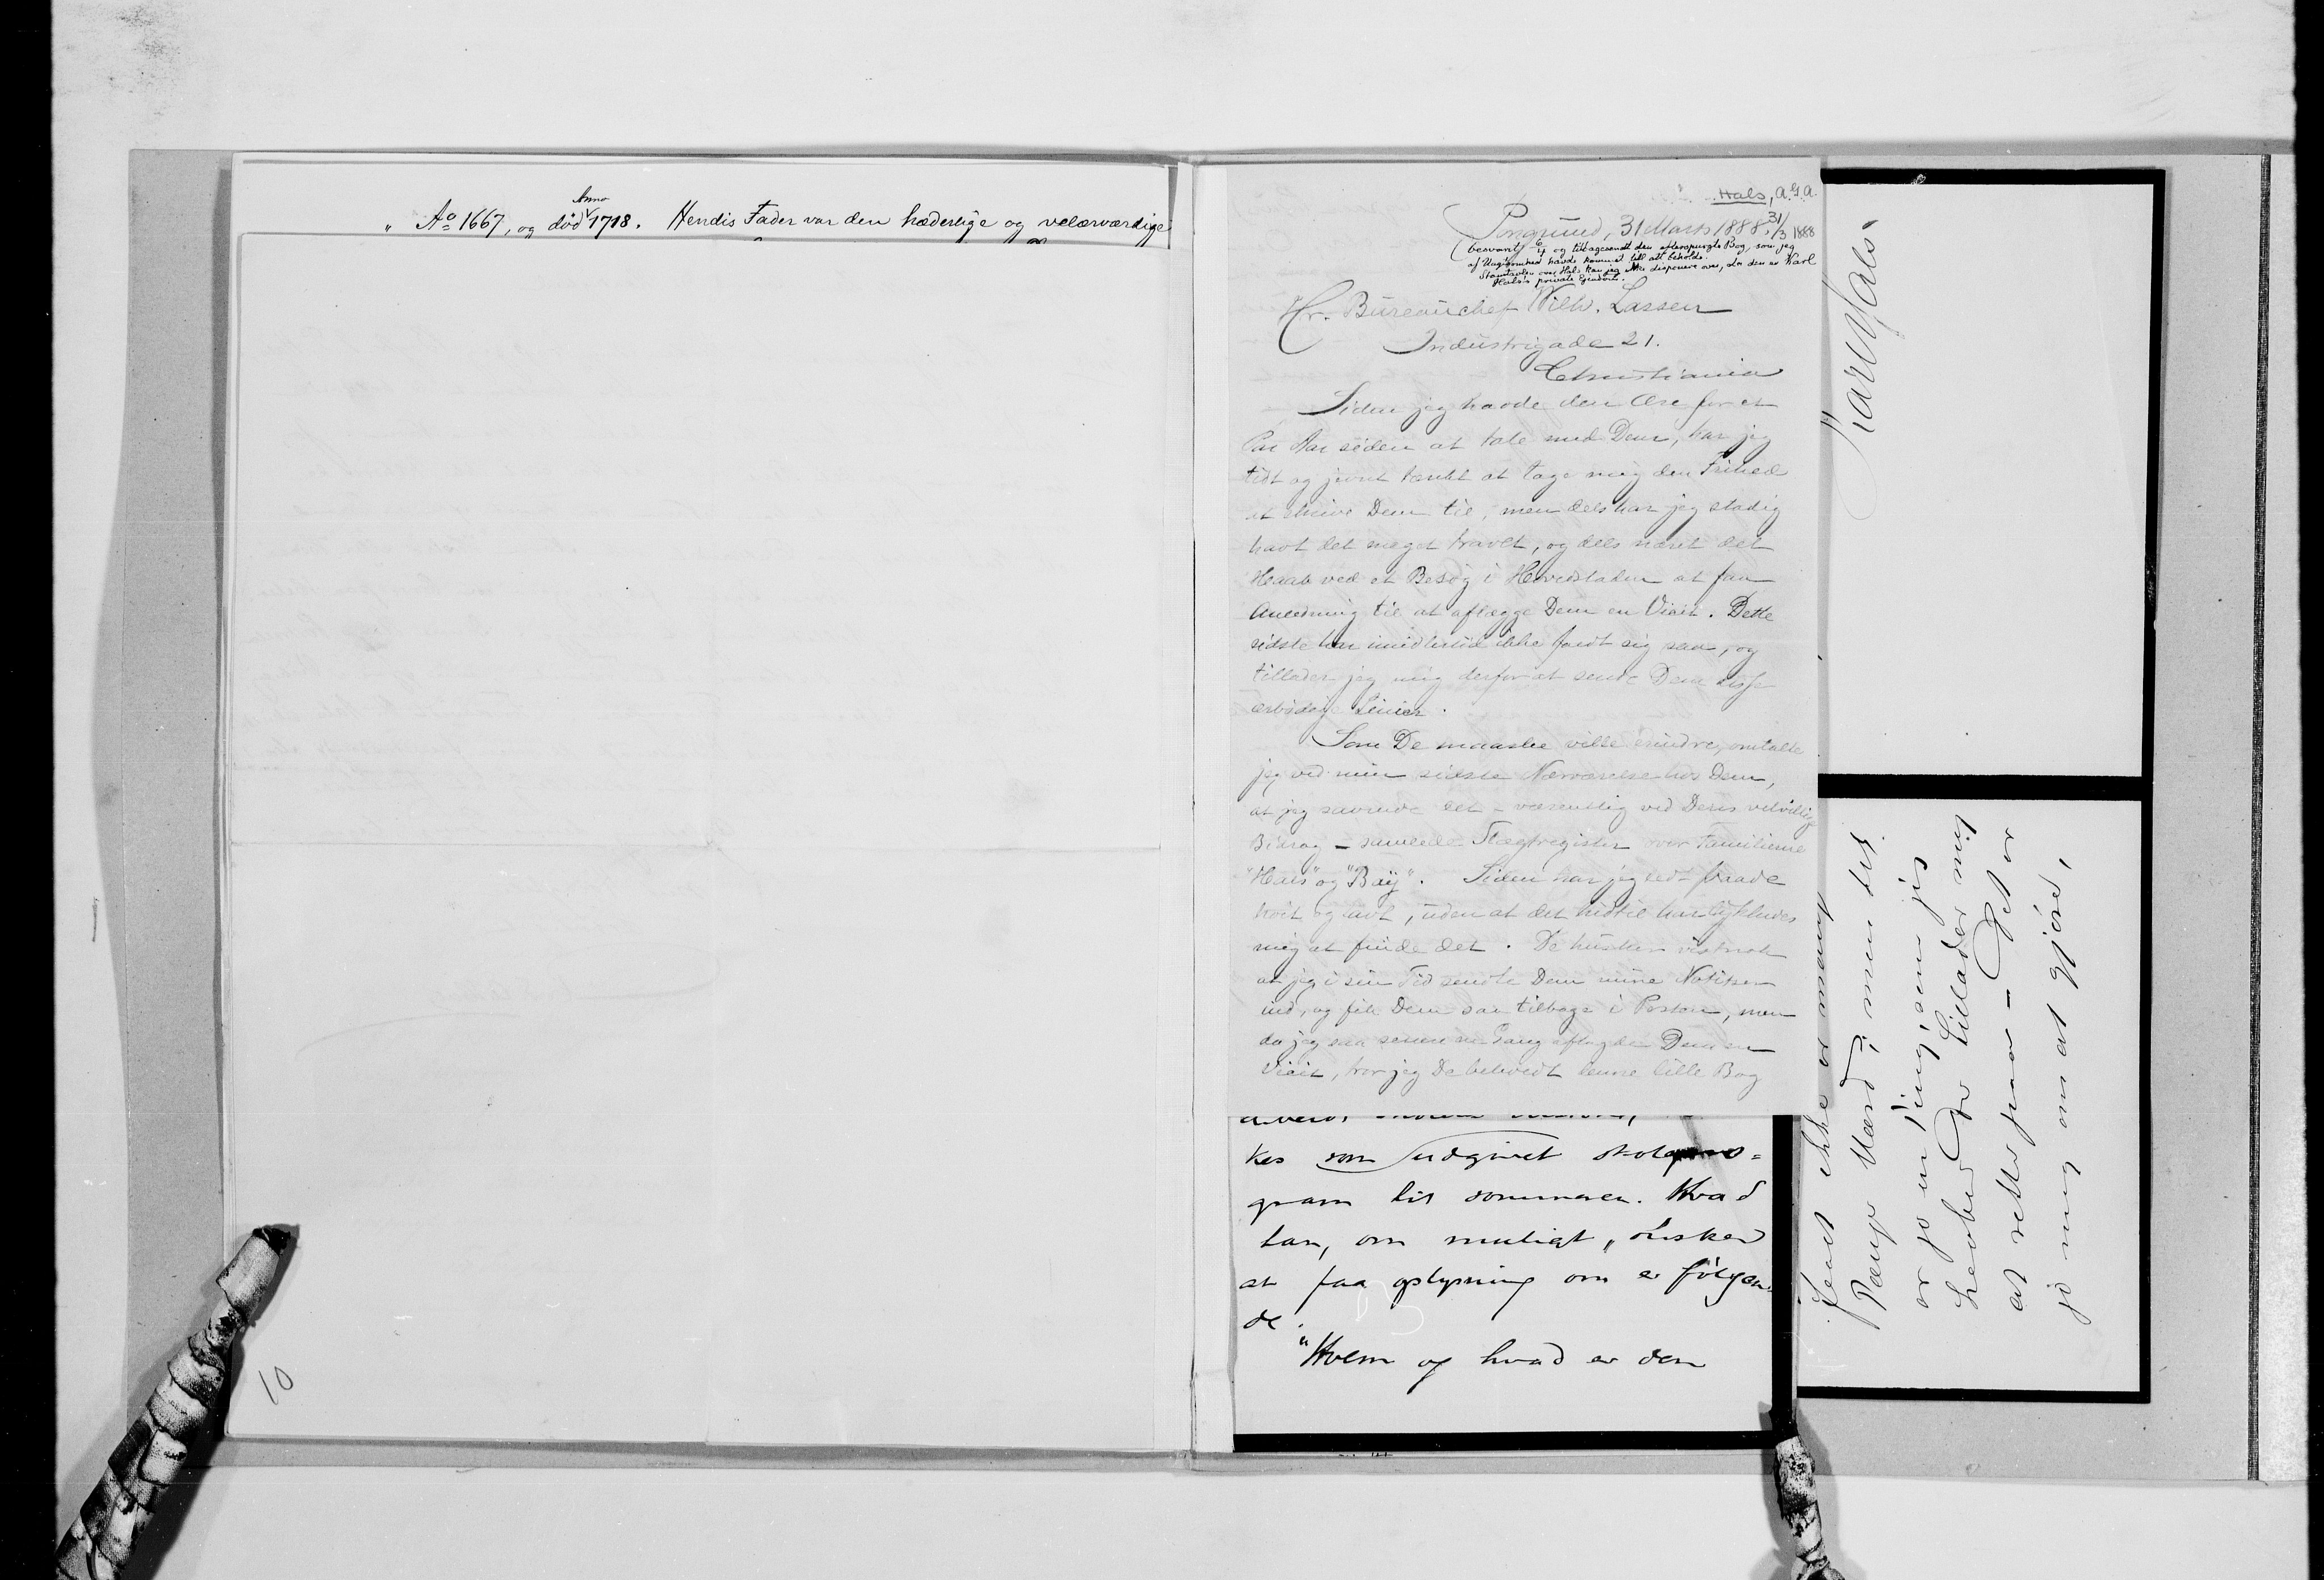 " Ao 1667, og död Anno 1718. Hendis Fader var den hæderlige og velærværdige
10
Hals, A.G.A.
31/3 1888
Porsgrund, 31 Marts 1888.
(besvaret 6/4 og tilbagesendt den efterspurgte Bog, som jeg
af Uagtsomhed havde kommet till att beholde.
Stamtavlen over Hals kan jeg ikke disponere over, da den er Karl
Hals's private Ejendom.
Hr. Bureauchef Vilh. Lassen
Industrigade 21.
Christiania
Siden jeg havde den Ære for et
Par Aar siden at tale med Dem, har jeg
tidt og jevnt tænkt at tage mig den Frihed
at skrive Dem til, men dels har jeg stadig
havt det meget travlt, og dels næret det
Haab ved et Besøg i Hovedstaden at faa
Anledning til at aflægge Dem en Visit. Dette
sidste har imidlertid ikke føiet sig saa, og
tillader jeg mig derfor at sende Dem disse
ærbødige Linier.
Som De maaske ville erindre, omtalte
jeg ved min sidste Nærværelse hos Dem,
at jeg savnede det - væsentlig ved Deres velvillige
Bidrag - samlede Slægtregister over Familierne
"Hals" og "Baÿ". Siden har jeg ledt baade
høit og lavt, uden at det hidtil har lykkedes
mig at finde det. De husker vistnok
at jeg i sin Tid sendte Dem mine Notitser
ind, og fik Dem saa tilbage i Posten, men
da jeg saa senere en Gang aflagde Dem en
Visit, tror jeg De beholdt denne lille Bog
kes som udgivet skolepro=
gram til sommeren. Hvad
han, om muligt, ønsker
at faa oplysning om er følgen
de.
"Hvem og hvad er den
Karl Hals.
Penge Værd; men det
er jo en Ting, som jeg
De tillader mig
at rette paa - Det er
jo mig om at gjöre,